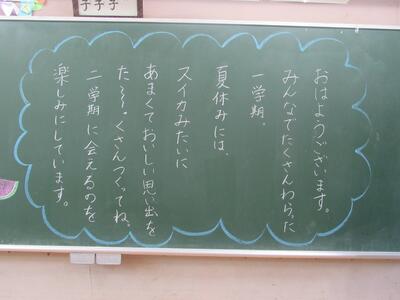 おはようございます。
みんなでたくさんわらった
一学期。
夏休みには、
スイカみたいに
あまくておいしい思い出を
た〜〜くさんつくってね。
二学期に会えるのを
楽しみにしています。